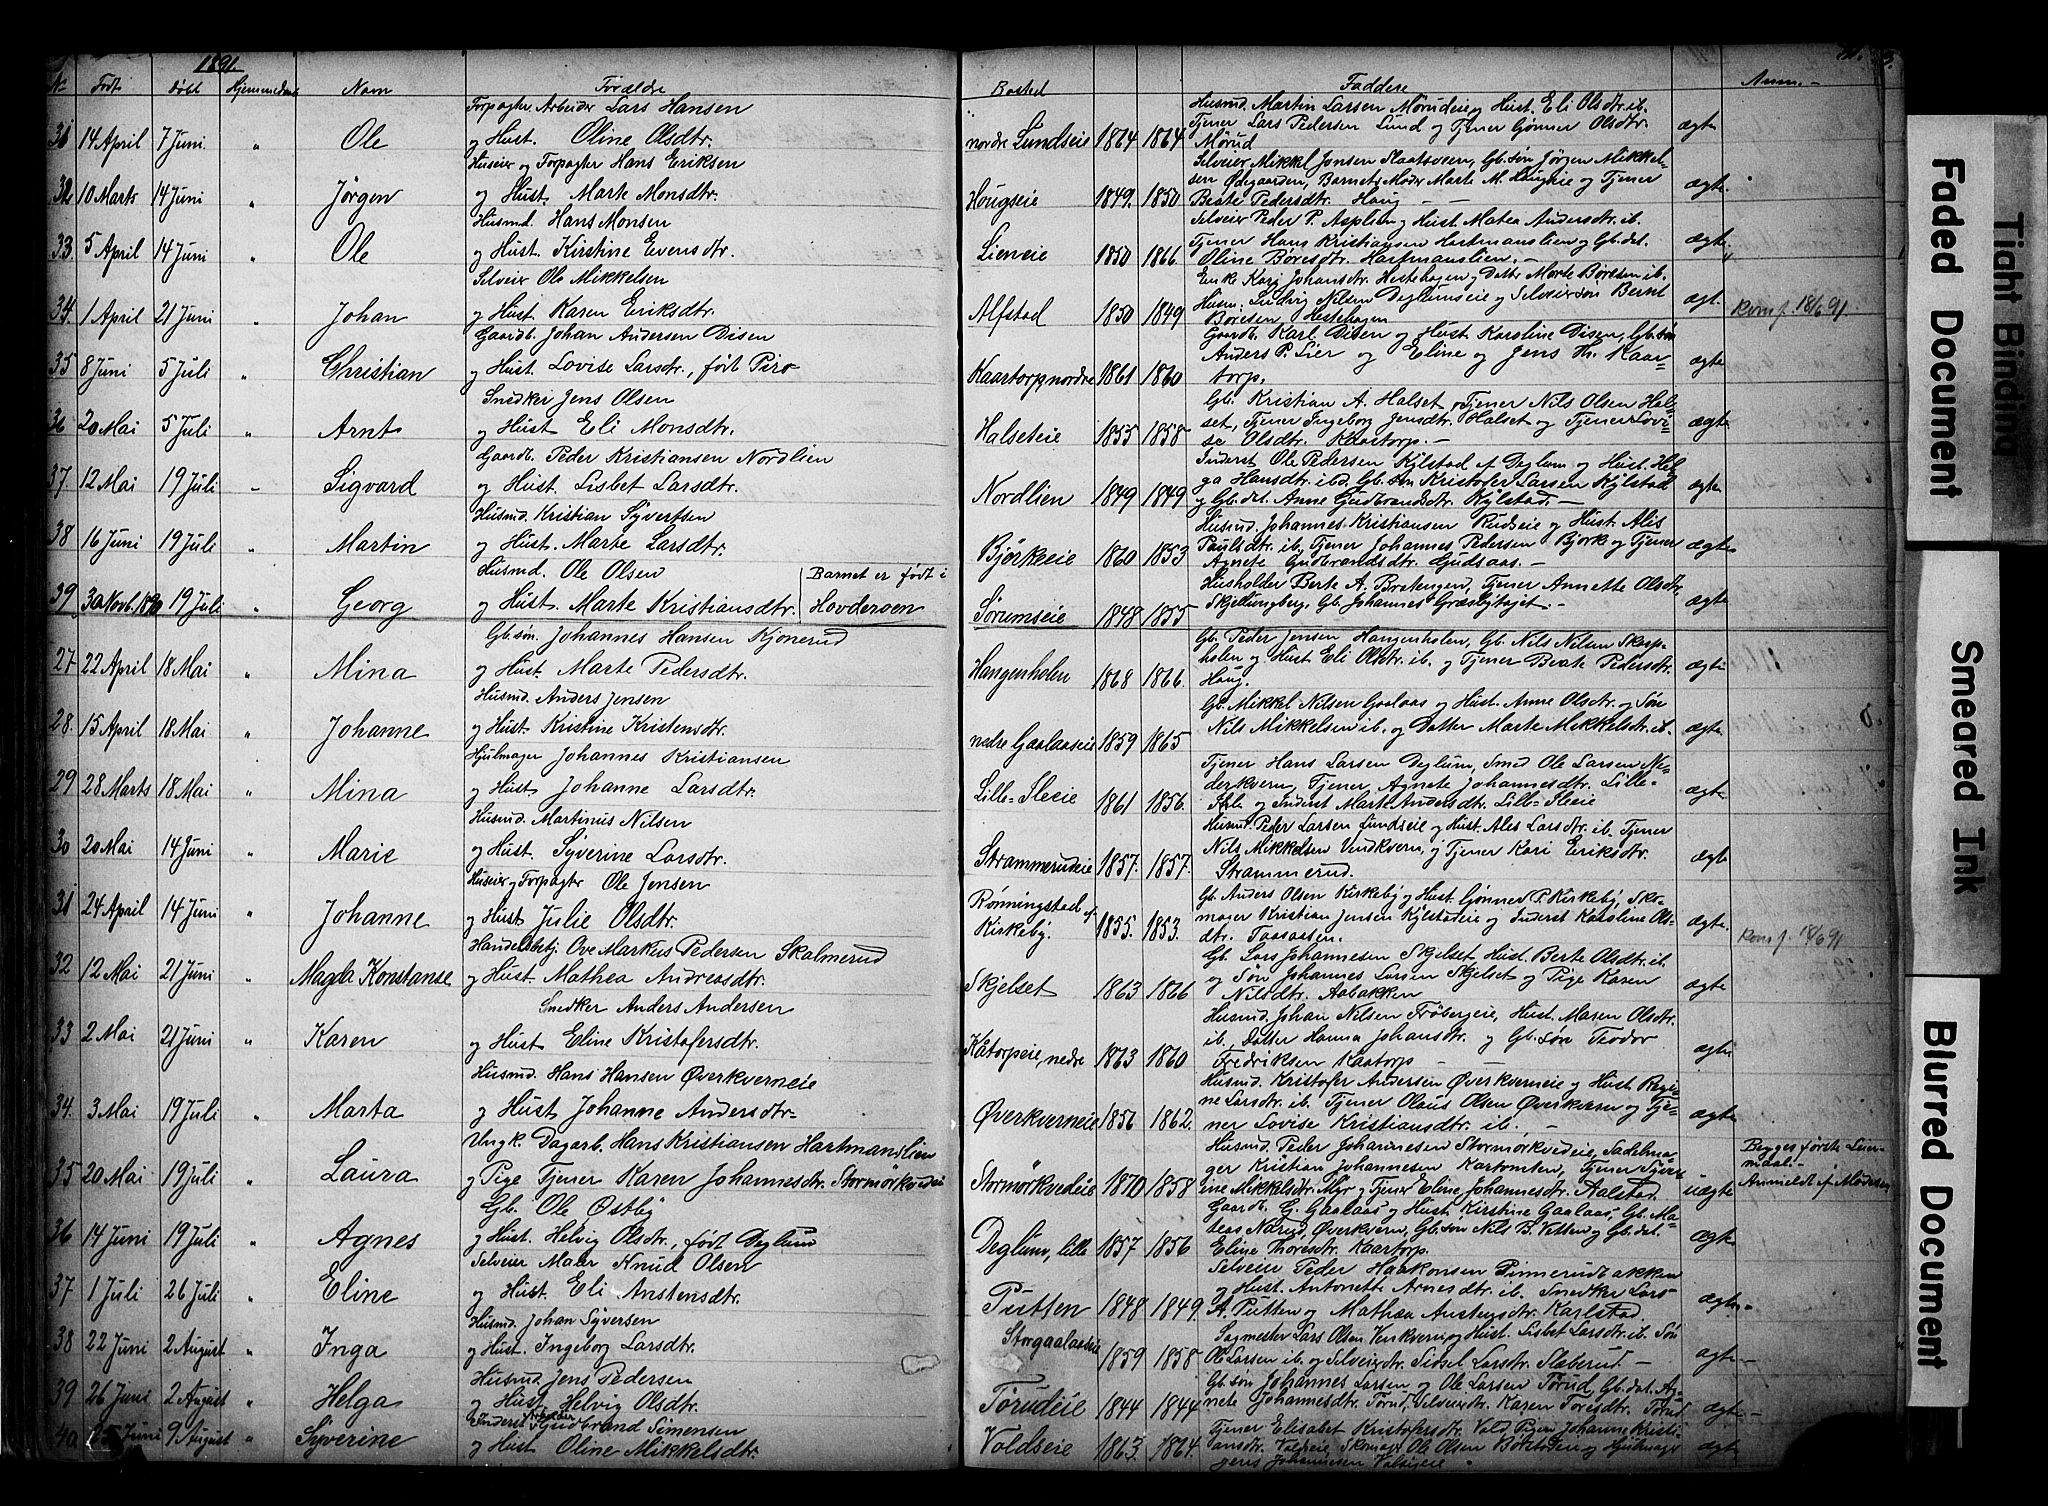 1891.
No Født Døbt Hjemmedøbt Navn Forældre Bosted Faddere Anm.
31 14 April 7 Juni " Ole Forpagter Arbeider Lars Hansen
og Hust. Oline Olsdtr. nordre Lundseie 1864 1864 ægte
Husmd. Martin Larsen Mörudeie og Hust. Eli Olsdtr. ib.
Tjener Lars Pedersen Lund og Tjener Gönner Olsdtr.
Mörud
32 10 Marts 14 Juni " Jörgen Huseier og Forpagter Hans Eriksen
og Hust. Marte Monsdtr. Hougseie 1849. 1850 ægte
Selveier Mikkel Jonsen Slaatsveen, Gb. søn Jörgen Mikkel-
sen Ødegaarden, Barnets Moder Marte M. Haugeie og Tjener
Beate Pedersdtr. Haug
33. 5 April 14 Juni " Ole Husmd. Hans Monsen
og Hust. Kirstine Evensdtr. Lieneie 1850 1866 ægte
Selveier Peder P. Asplun og Hust. Matea Andersdtr. ib.
Tjener Hans Kristiansen Hartmanslien og Gb. dat.
Oline Boresdtr. Hartmanslien.
34. 1 April 21 Juni " Johan Selveier Ole Mikkelsen
og Hust. Karen Eriksdtr. Alfstad 1850 1849 ægt. Komf. 18/6 91
Enke Kari Johansdtr. Hestehagen og Datter Marte Böresen ib.
Husm. Ludvig Nilsen Deglumseie og Selveiersøn Bernt
Böresen Hestehagen
35 8 Juni 5 Juli " Christian Gaardb. Johan Andersen Disen
og Hust. Lovise Larsdtr., født Piro Kaartorp nordre 1861 1860 ægte
Gaardb. Karl Disen og Hust. Karoline Disen, Gb. søn
Anders P. Lier og Eline og Jens Th. Kaar-
torp.
36 20 Mai 5 Juli " Arnt Snedker Jens Olsen
og Hust. Eli Monsdtr. Halseteie 1855 1858 ægte
Gb. Kristian A. Halset, Tjener Nils Olsen Hal-
set, Tjener Ingeborg Jensdtr. Halset og Tjener Lovi-
se Olsdtr. Kaatorp.
37. 12 Mai 19 Juli " Sigvard Gaardb. Peder Kristiansen Nordlien
og Hust. Lisbet Larsdtr. Nordlien 1849 1849 ægte
Inderst Ole Pedersen Kylstad af Deglum og Hust. Hel-
ga Hansdtr. ibd. Gb. søn Kristofer Larsen Kylstad
og Gb. dat. Anne Gudbrandsdtr. Kylstad.
38 16 Juni 19 Juli " Martin Husmd. Kristian Syvertsen
og Hust. Marte Larsdtr. Björkeeie 1860 1853 ægte
Husmd. Johannes Kristiansen Rudseie og Hust. Alis
Paulsdtr. ib. Tjener Johannes Pedersen Björk og Tjener
Agnete Gudbrandsdtr. Gudsaas.
39 30 Novb. 1890 19 Juli " Georg Husmd. Ole Olsen
og Hust. Marte Kristiansdtr. Barnet er født i
Hovderoen Sörumseie 1848 1855 ægte
Husholder Berte A. Bratengen, Tjener Annette Olsdtr.
Skjellungberg, Gb. Johannes Græslytojet.
27 22 April 18 Mai " Mina Gb. søn. Johannes Hansen Kjonerud
og Hust. Marte Pedersdtr. Hangenholen 1868 1866. ægte
Gb. Peder Jensen Hangenholen, Gb. Nils Nilsen Skarp-
holen og Hust Eli Olsdtr. ib. og Tjener Beate Pedersdtr.
Haug.
28. 15 April 18 Mai " Johanne Husmd. Anders Jensen
og Hust. Kristine Kristensdtr. nedre Gaalaaseie 1859 1865 ægte
Gb. Mikkel Nilsen Gaalaas og Hust. Anne Olsdtr. og Søn
Nils Mikkelsen ib. og Datter Marte Mikkelsdtr. ib.
29 28 Marts 18 Mai " Mina Hjulmager Johannes Kristiansen
og Hust. Johanne Larsdtr. Lille-Sleeie 1861 1856. ægte
Tjener Hans Larsen Deglum, Smed Ole Larsen Ne-
derkvern, Tjener Agnete Johannesdtr. Lille-
Sle og Inderst Marte Andersdtr. Lille-Sleeie
30 20 Mai 14 Juni " Marie Husmd. Martinus Nilsen
og Hust. Syverine Larsdtr. Strammerudeie 1857. 1857. ægte
Husmd. Peder Larsen Lundseie og Hust. Ales Larsdtr. ib. Tjener
Nils Mikkelsen Vendkvern, og Tjener Kari Eriksdtr.
Strammerud.
31 24 April 14 Juni " Johanne Huseier og Forpagter Ole Jensen
og Hust. Julie Olsdtr. Rønningstad af
Kirkeby. 1855. 1853. ægte Komf. 18/6 91
Gb. Anders Olsen Kirkeby og Hust. Gönner P. Kirkeby, Sko-
mager Kristian Jensen Kylstadeie og Inderst Karoline Ols-
dtr. Taasaasen.
32 12 Mai 21 Juni " Magda Konstanse Handelsbetj. Ove Markus Pedersen Skalmerud
og Hust. Mathea Andreasdtr. Skjelset 1863 1866 ægte
Gb. Lars Johannesen Skjelset, Hust. Berte Olsdtr. ib.
og Søn Johannes Larsen Skjelset og Pige Karen
Nilsdtr. Aabakken
33 2 Mai 21 Juni " Karen Snedker Anders Andersen
og Hust. Eline Kristofersdtr. Kåtorpeie, nedre 1863 1860 ægte
Husmd. Johan Nilsen Fröbergeie, Hust. Maren Olsdtr.
ib., Datter Hanna Johansdtr. og Gb. Søn Teodor
Fredriksen Kaatorp
34. 3 Mai 19 Juli " Marta Husmd. Hans Hansen Øverkverneie
og Hust. Johanne Andersdtr. Øverkverneie 1856 1862. ægte
Husmd. Kristofer Andersen Øverkverneie og Hust. Regi-
ne Larsdtr. ib. Tjener Olaus Olsen Øverkvern og Tje-
ner Lovise Kristiansdtr. ib.
35 20 Mai 19 Juli " Laura Ungk. Dagarb. Hans Kristiansen Hartmanslien
og Pige Tjener Karen Johannesdtr. Stormörkvedeie Stormörkvedeie 1870 1858 uægte
Husmd. Peder Johannesen Stormörkvedeie, Sadelma-
ger Kristian Johannesen Kartomten, Tjener Syve-
rine Mikkelsdtr. Myr og Tjener Eline Johannesdtr. Aalstad.
Begges første Leier-
maal.
Anmeldt af Moderen
36 14 Juni 19 Juli " Agnes Gb. Ole Østby
og Hust. Helvig Olsdtr., født Deglum Deglum, lille 1857 1856 ægte
Gaardb. G. Gaalaas og Hust. Kirstine Gaalaas, Gb. Ma-
teas Narud, Øverkvern, Gb. søn Nils B. Vetten og Gb. dat.
Eline Thoresdtr. Kaartorp.
37 1 Juli 26 Juli " Eline Selveier Maler Knud Olsen
og Hust. Eli Anstensdtr. Putten 1848 1849. ægte
Selveier Peder Haakonsen Pinnerudbakken
og Hust. Antonette Arnesdtr. ib. Snedker Lars
A. Putten og Mathea Anstensdtr. Karlstad
38 22 Juni 2 August " Inga Husmd. Johan Syversen
og Hust. Ingeborg Larsdtr. Storgaalaaseie 1859 1858 ægte
Sagmester Lars Olsen Venkvern og Hust. Lisbet Larsdtr. ib. Søn
Ole Larsen ib. og Selveierdtr. Sidsel Larsdtr. Slaberud
39 26 Juni 2 August " Helga Husmd. Jens Pedersen
og Hust. Helvig Olsdtr. Törudeie 1844 1844 ægte
Gb. søn Johannes Larsen og Ole Larsen Törud, Gb. dat. Ag-
nete Johannesdtr. Törud, Selveierdtr. Karen Toresdtr. Törud
40 Juni 9 August " Syverine Inderst Arbeider Gudbrand Simensen
og Hust. Oline Mikkelsdtr. Voldseie 1863. 1864. ægte
Tjener Elisabet Kristofersdtr. Vold Pigen Johanne Kristi-
ansdtr. Valseie Skomager Ole Olsen Börstoen og Hjulmager
Jens Johannesen Valsieie
Tight Binding
Faded Document
Smeared Ink
Blurred Document